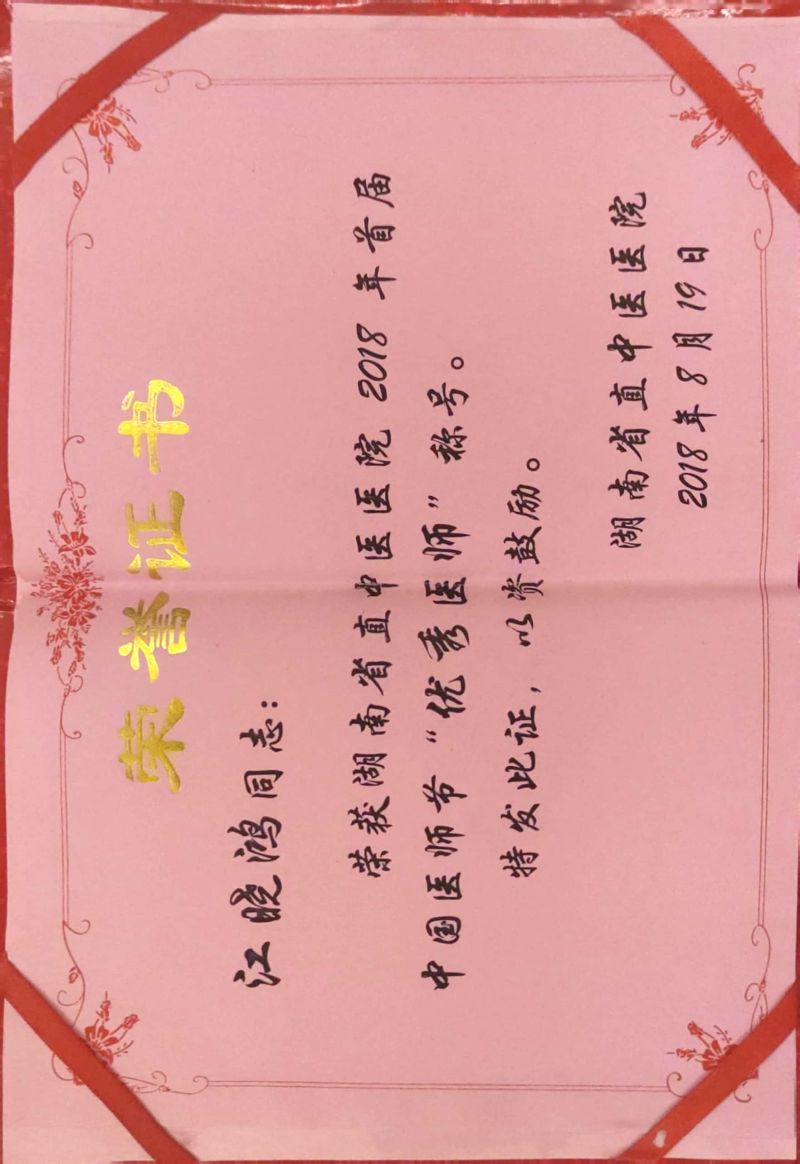 荣誉证书
江晓鸿同志：
荣获湖南省直中医医院 2018 年首届
中国医师节“优秀医师”称号。
特发此证，以资鼓励。
湖南省直中医医院
2018 年 8 月 19 日